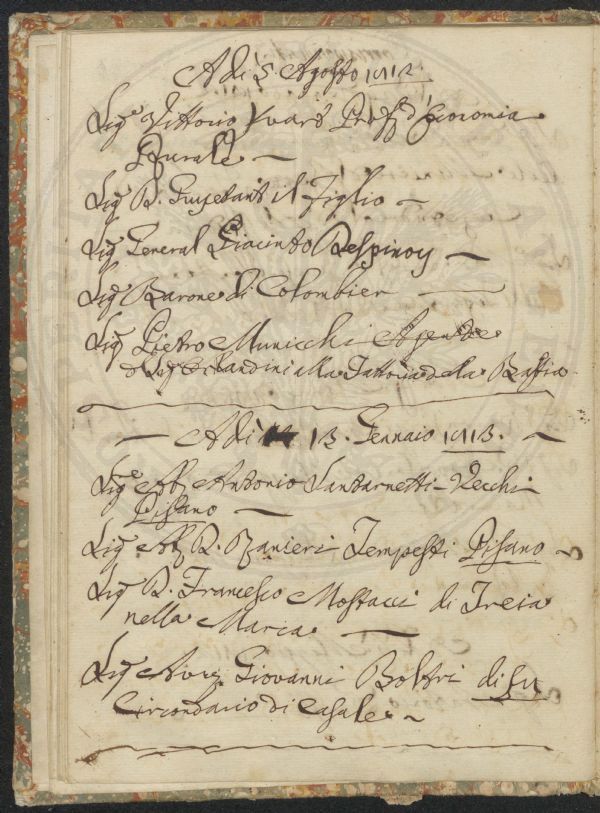 Adì 5 Agosto 1812
Sigʳ Vittorio Yvart Proffʳ d'Economia
Rurale
Sigʳ D. il Figlio
Sigʳ General Giacinto Despinoy
Sigʳ Barone di Colombier
Sigʳ Pietro Municchi Agente
alla Fattoria della Badia
Adì 13. Gennaio 1813.
Sigʳ Ab Antonio Santarnetti-Vecchi
Pisano
Sigʳ Ab R. Ranieri Tempesti Pisano
Sigʳ D. Francesco Mostacci di Treia
nella Marca
Sigʳ Avv Giovanni Boltri di
Circondario di Casale